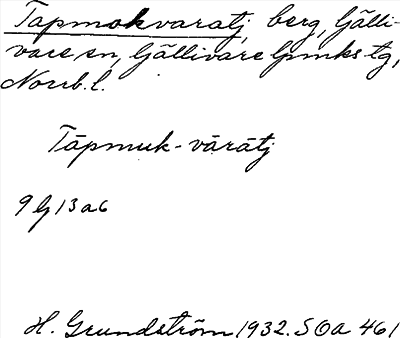 Tapmokvaratj, berg, Gälli-
vare sn, Gällivare lpmks tg,
Norrb. l.
Tāpmuk-vārātj
9 G 13 a 6
H. Grundström 1932. SOA 461